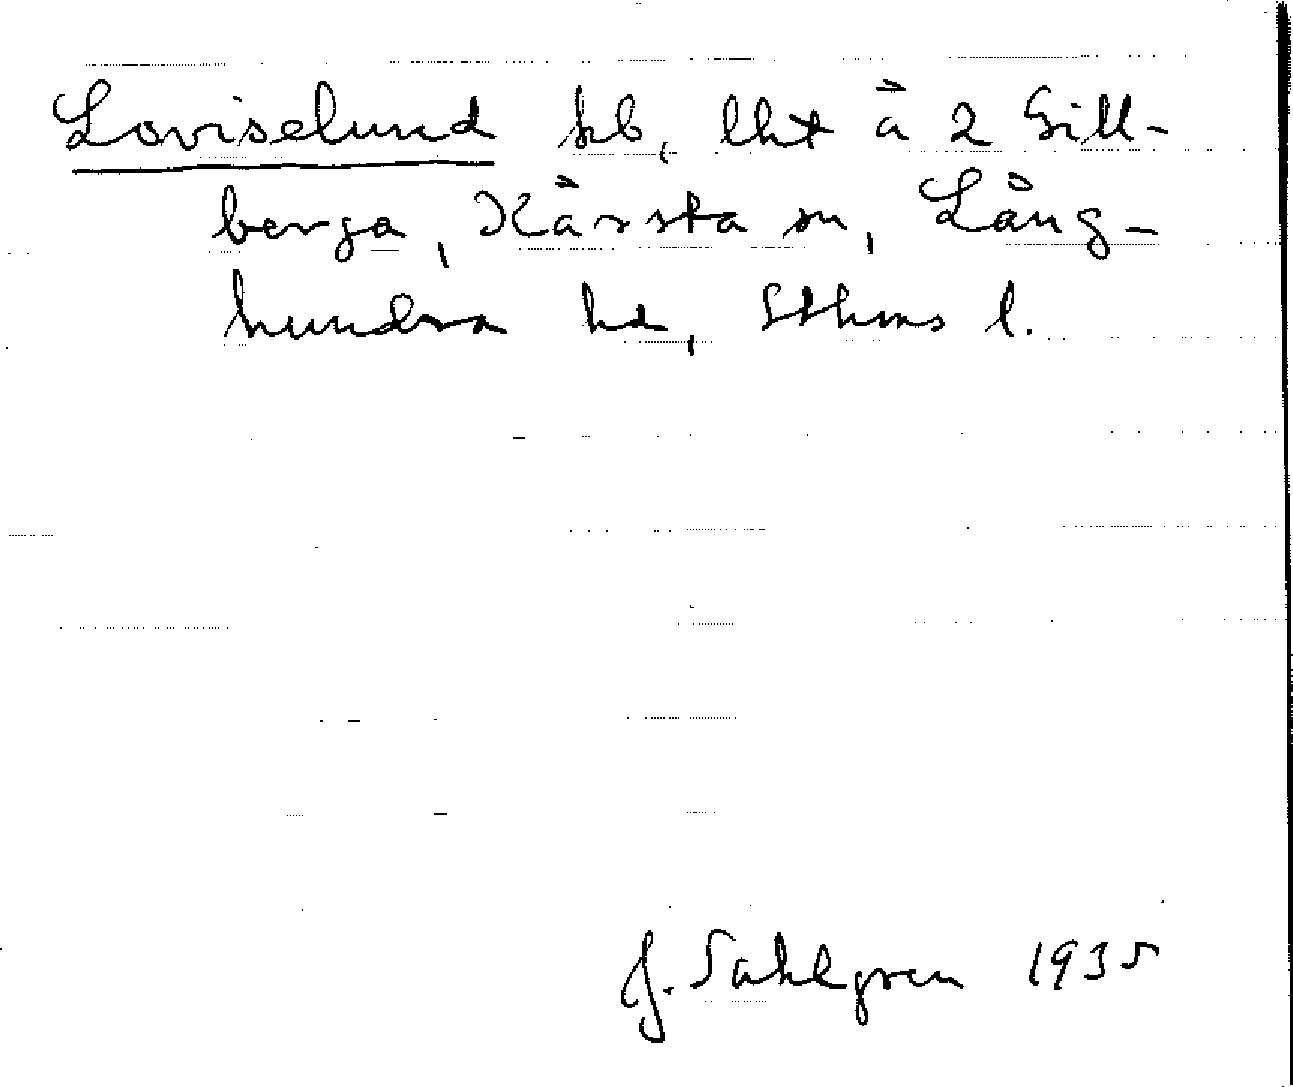 Loviselund hb, lht å 2 Gill-
berga, Kårsta sn, Lång-
hundra hd, Sthms l.
J. Sahlgren 1935